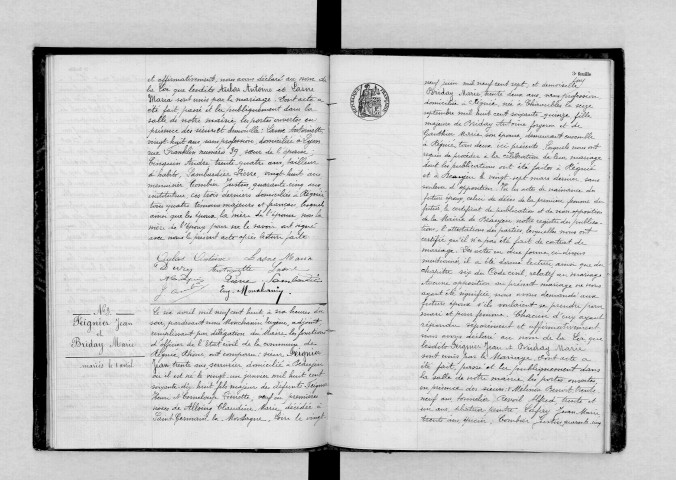 et affirmativement, nous avons déclaré au nom de
la Loi que lesdits Antoine et
Marie sont unis par le mariage. Dont acte a
été fait, passé et lu publiquement dans la
salle de notre mairie, les portes ouvertes, en
présence des sieurs et demoiselle Antoinette
vingt-huit ans sans profession, domiciliée à Lyon
rue Franklin numéro 39, sœur de l'épouse
André trente quatre ans, tailleur
d'habits, Pierre, vingt huit ans
menuisier Combier Justin, quarante cinq ans
instituteur ces trois derniers domiciliés à Régnié
tous quatre témoins majeurs et français, lesquels
ainsi que les époux, la mère de l'épouse, non la
mère de l'époux pour ne le savoir ont signé
avec nous le présent acte après lecture faite
Antoine Marie
Antoinette
Pierre
Eug. Monchanin
N° 8
Peignier Jean
et
Briday Marie
mariés le 6 avril
Le six avril mil neuf cent huit, à six heures du
soir, pardevant nous Monchanin Eugène, adjoint
remplissant par délégation du Maire, les fonctions
d'officier de l'État civil de la commune de
Régnié, Rhône ont comparu: sieur Peignier
Jean trente ans serrurier domicilié à Beaujeu
où il est né le vingt un janvier mil huit cent
soixante dix huit, fils majeur des défunts Peignier
et Pierrette, veuf en premières
noces de Claudine Marie, décédée à
Saint Germain la Montagne, Loire le vingt
9e feuille
neuf juin mil neuf cent sept, et demoiselle
Briday Marie, trente deux ans, sans profession
domiciliée à Régnié, née à le seize
septembre mil huit cent soixante quinze fille
majeure de Briday Antoine, forgeron et de
Gauthier Marie, son épouse, demeurant ensemble
à Régnié, tous deux ici présents. Lesquels nous ont
requis de procéder à la célébration de leur mariage
dont les publications ont été faites à Régnié
et à Beaujeu le vingt sept mars dernier sans
survenu d'opposition. Vu les actes de naissance du
futur époux, celui de décès de la première femme du
futur, le certificat de publication et de non opposition
de la Mairie de Beaujeu, notre registre des publica-
tions, l'attestation des parties, lesquelles nous ont
certifié qu'il n'a pas été fait de contrat de
mariage. Les actes en due forme, ci-dessus
mentionnés, il a été donné lecture, ainsi que du
chapitre six du Code civil, relatif au mariage
Aucune opposition au présent mariage ne nous
ayant été signifiée, nous avons demandé aux
futurs époux s'ils voulaient se prendre pour
mari et pour femme. Chacun d'eux ayant
répondu séparément et affirmativement
nous avons déclaré au nom de la Loi que
lesdits Peignier Jean et Briday Marie
sont unis par le Mariage. Dont acte a
été fait, passé et lu publiquement dans
la salle de notre mairie, les portes ouvertes,
en présence des sieurs: Benoit trente
neuf ans tonnelier, Revoil Alfred, trente et
un ans plâtrier peintre, Jean Marie
trente ans Combier Justin quarante cinq